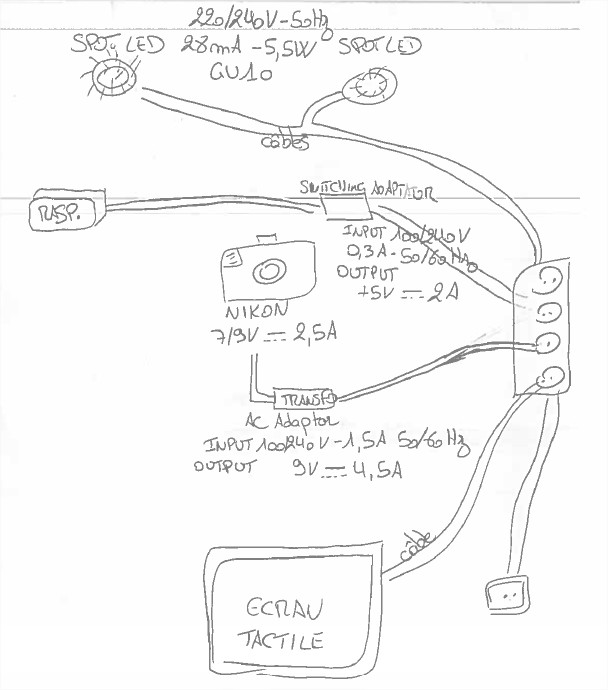 220/240V-50Hz
SPOT LED 28mA-5,5W SPOT LED
GU10
câbles
SWITCHING ADAPTATOR
RASP.
INPUT 100/240V
0,3A-50/60Hz
OUTPUT
+5V ⎓ 2A
NIKON
7/9V ⎓ 2,5A
TRANSFO
AC Adaptor
INPUT 100/240V-1,5A 50/60Hz
OUTPUT 9V ⎓ 4,5A
câble
ECRAN
TACTILE